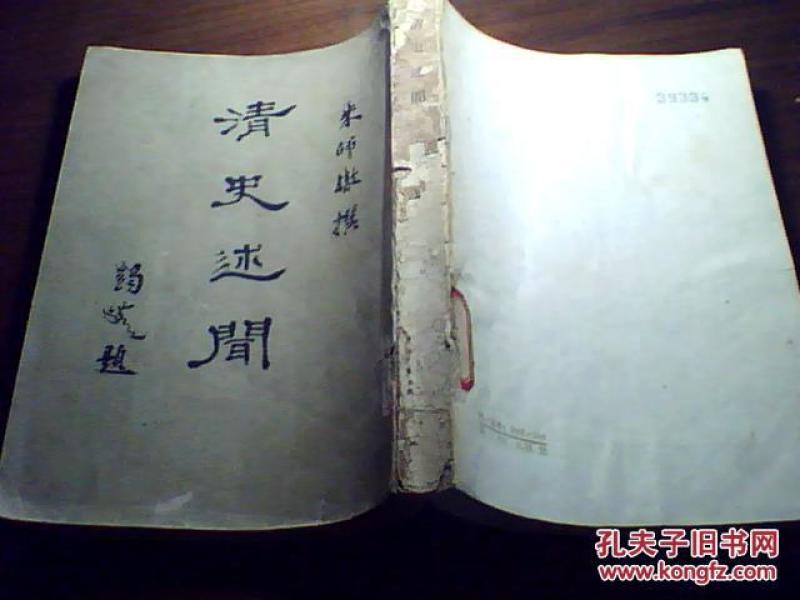 朱師轍撰
清史述聞
題
39334
孔夫子旧书网
www.kongfz.com